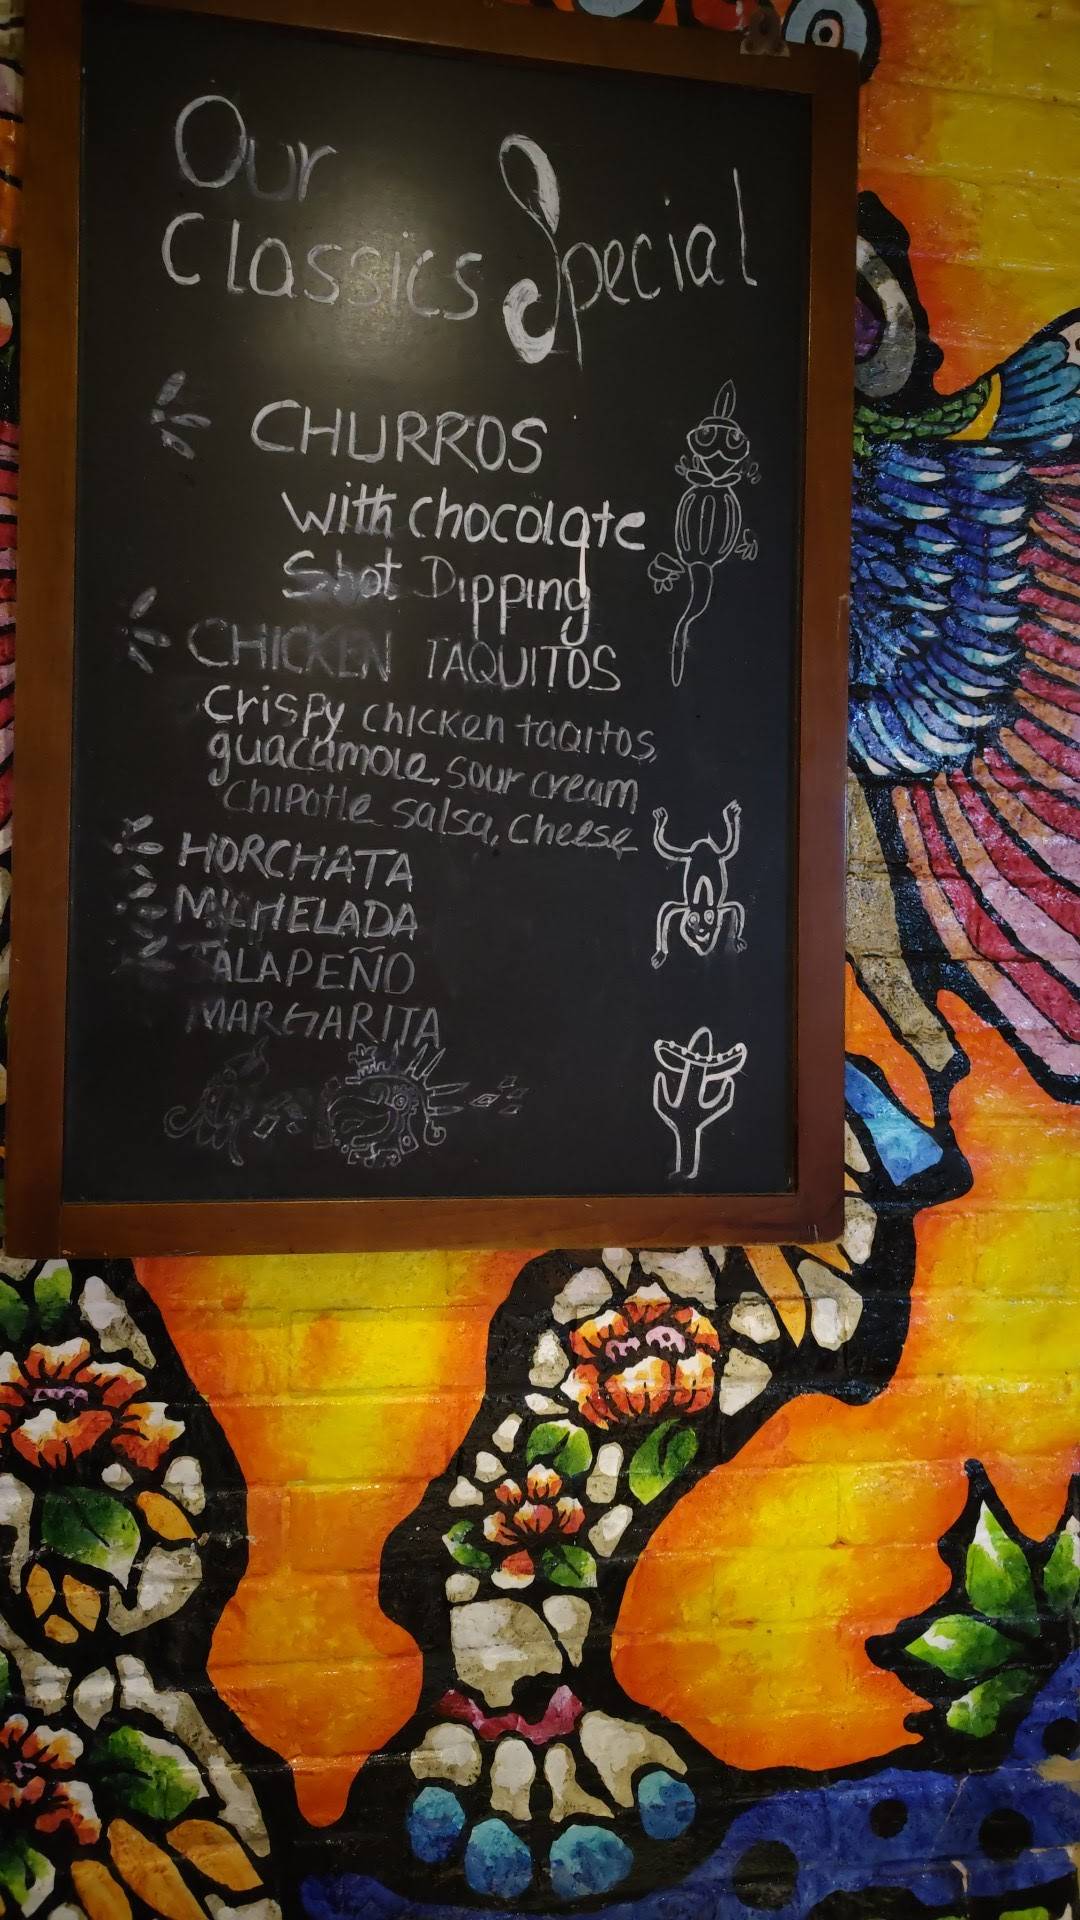 Our
Classics Special
CHURROS
with chocolate
Shot Dipping
CHICKEN TAQUITOS
Crispy chicken taqitos,
guacamole, sour cream
chipotle salsa, cheese
HORCHATA
MICHELADA
JALAPEÑO
MARGARITA